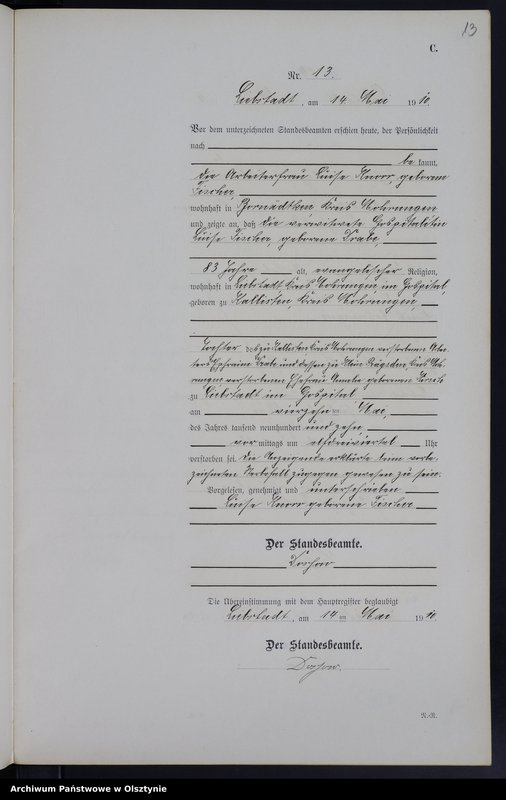 13
C.
Nr. 13.
Liebstadt, am 14 Mai 1910.
Vor dem unterzeichneten Standesbeamten erschien heute, der Persönlichkeit
nach
bekannt,
die Arbeiterfrau Luise Knorr, geborene
Fischer,
wohnhaft in Kreis Mohrungen
und zeigte an, daß die verwitwete Hospitalitin
Luise Fischer, geborene
83 Jahre alt, evangelischer Religion,
wohnhaft in Liebstadt, Kreis Mohrungen, im Hospital,
geboren zu Kallisten, Kreis Mohrungen,
Tochter des zu Kallisten Kreis Mohrungen verstorbenen Arbei-
ters und dessen zu Klein Kreis Moh-
rungen verstorbenen Ehefrau geborenen
zu Liebstadt im Hospital
am vierzehnten Mai,
des Jahres tausend neunhundert und zehn,
vormittags um elfdreiviertel Uhr
verstorben sei. Die Anzeigende erklärte beim vorbe-
zeichneten Sterbefall zugegen gewesen zu sein.
Vorgelesen, genehmigt und unterschrieben
Luise Knorr geborene Fischer
Der Standesbeamte.
Die Übereinstimmung mit dem Hauptregister beglaubigt
Liebstadt, am 14ten Mai 1910.
Der Standesbeamte.
N.-R.
Archiwum Państwowe w Olsztynie